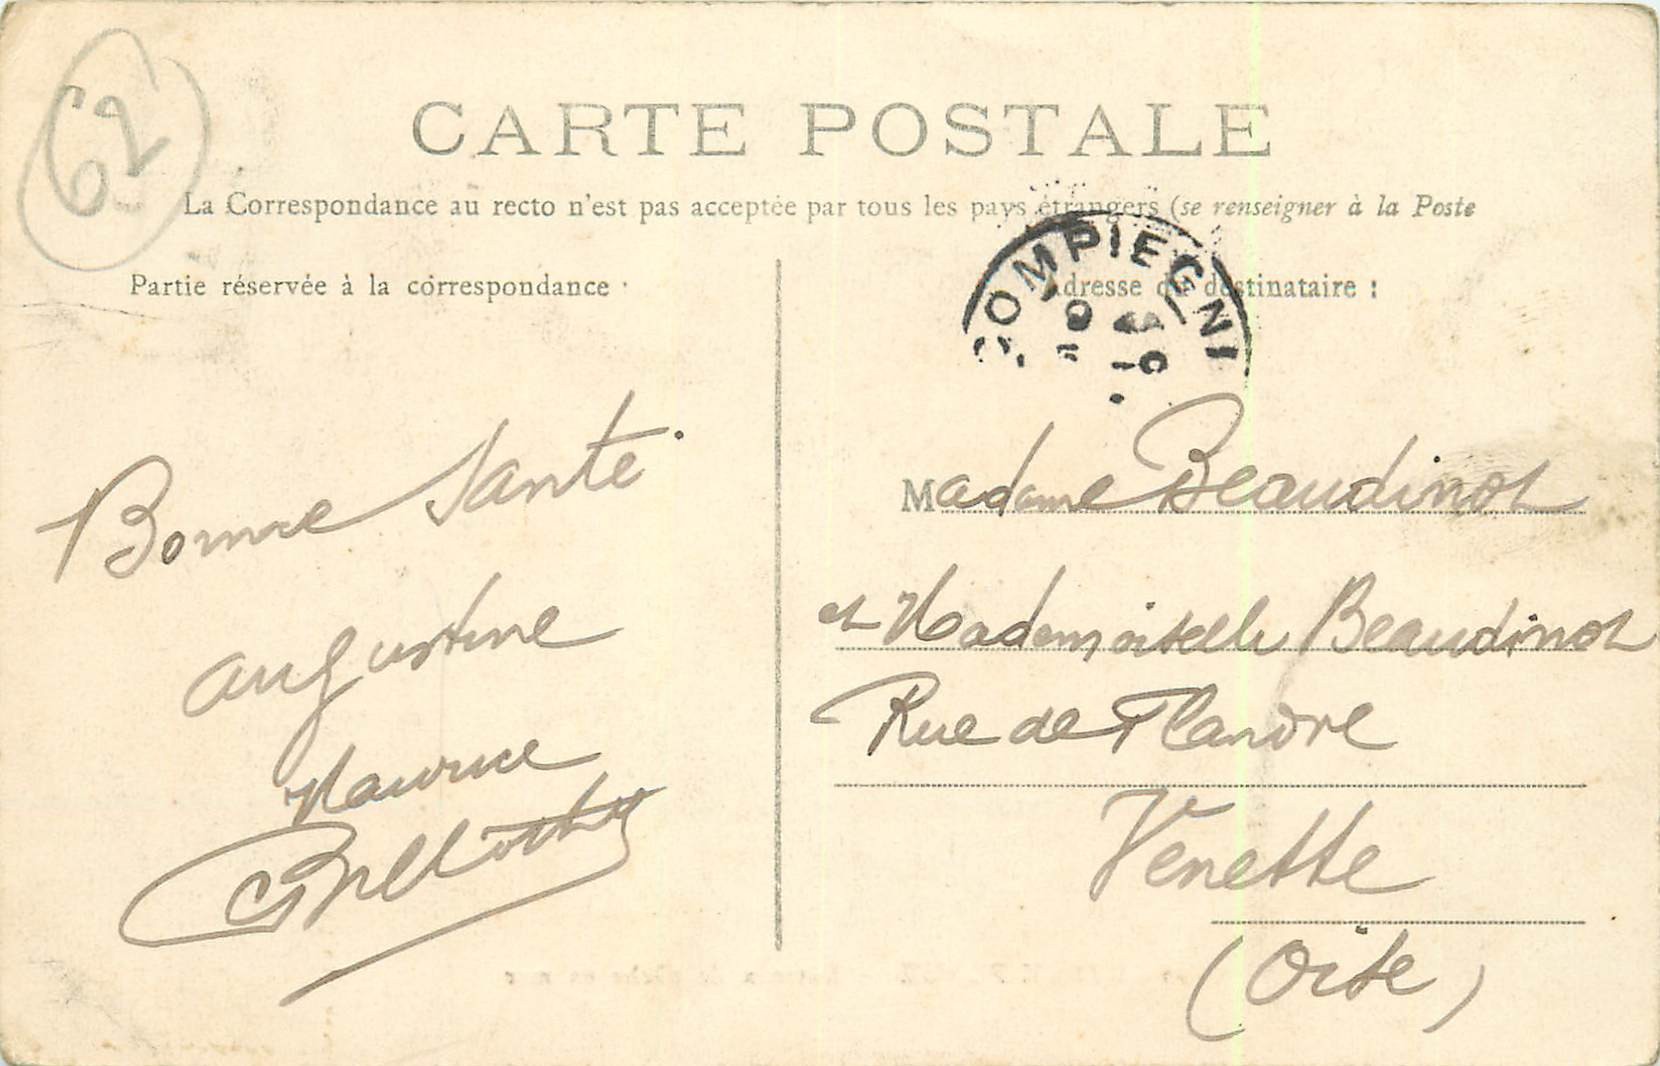 62
CARTE POSTALE
La Correspondance au recto n'est pas acceptée par tous les pays étrangers (se renseigner à la Poste
Partie réservée à la correspondance
Adresse du destinataire :
COMPIEGNE
Bonne Santé.
Augustine
Maurice
Madame Beaudinot
et Mademoiselle Beaudinot
Rue de Flandre
Venette
(Oise)